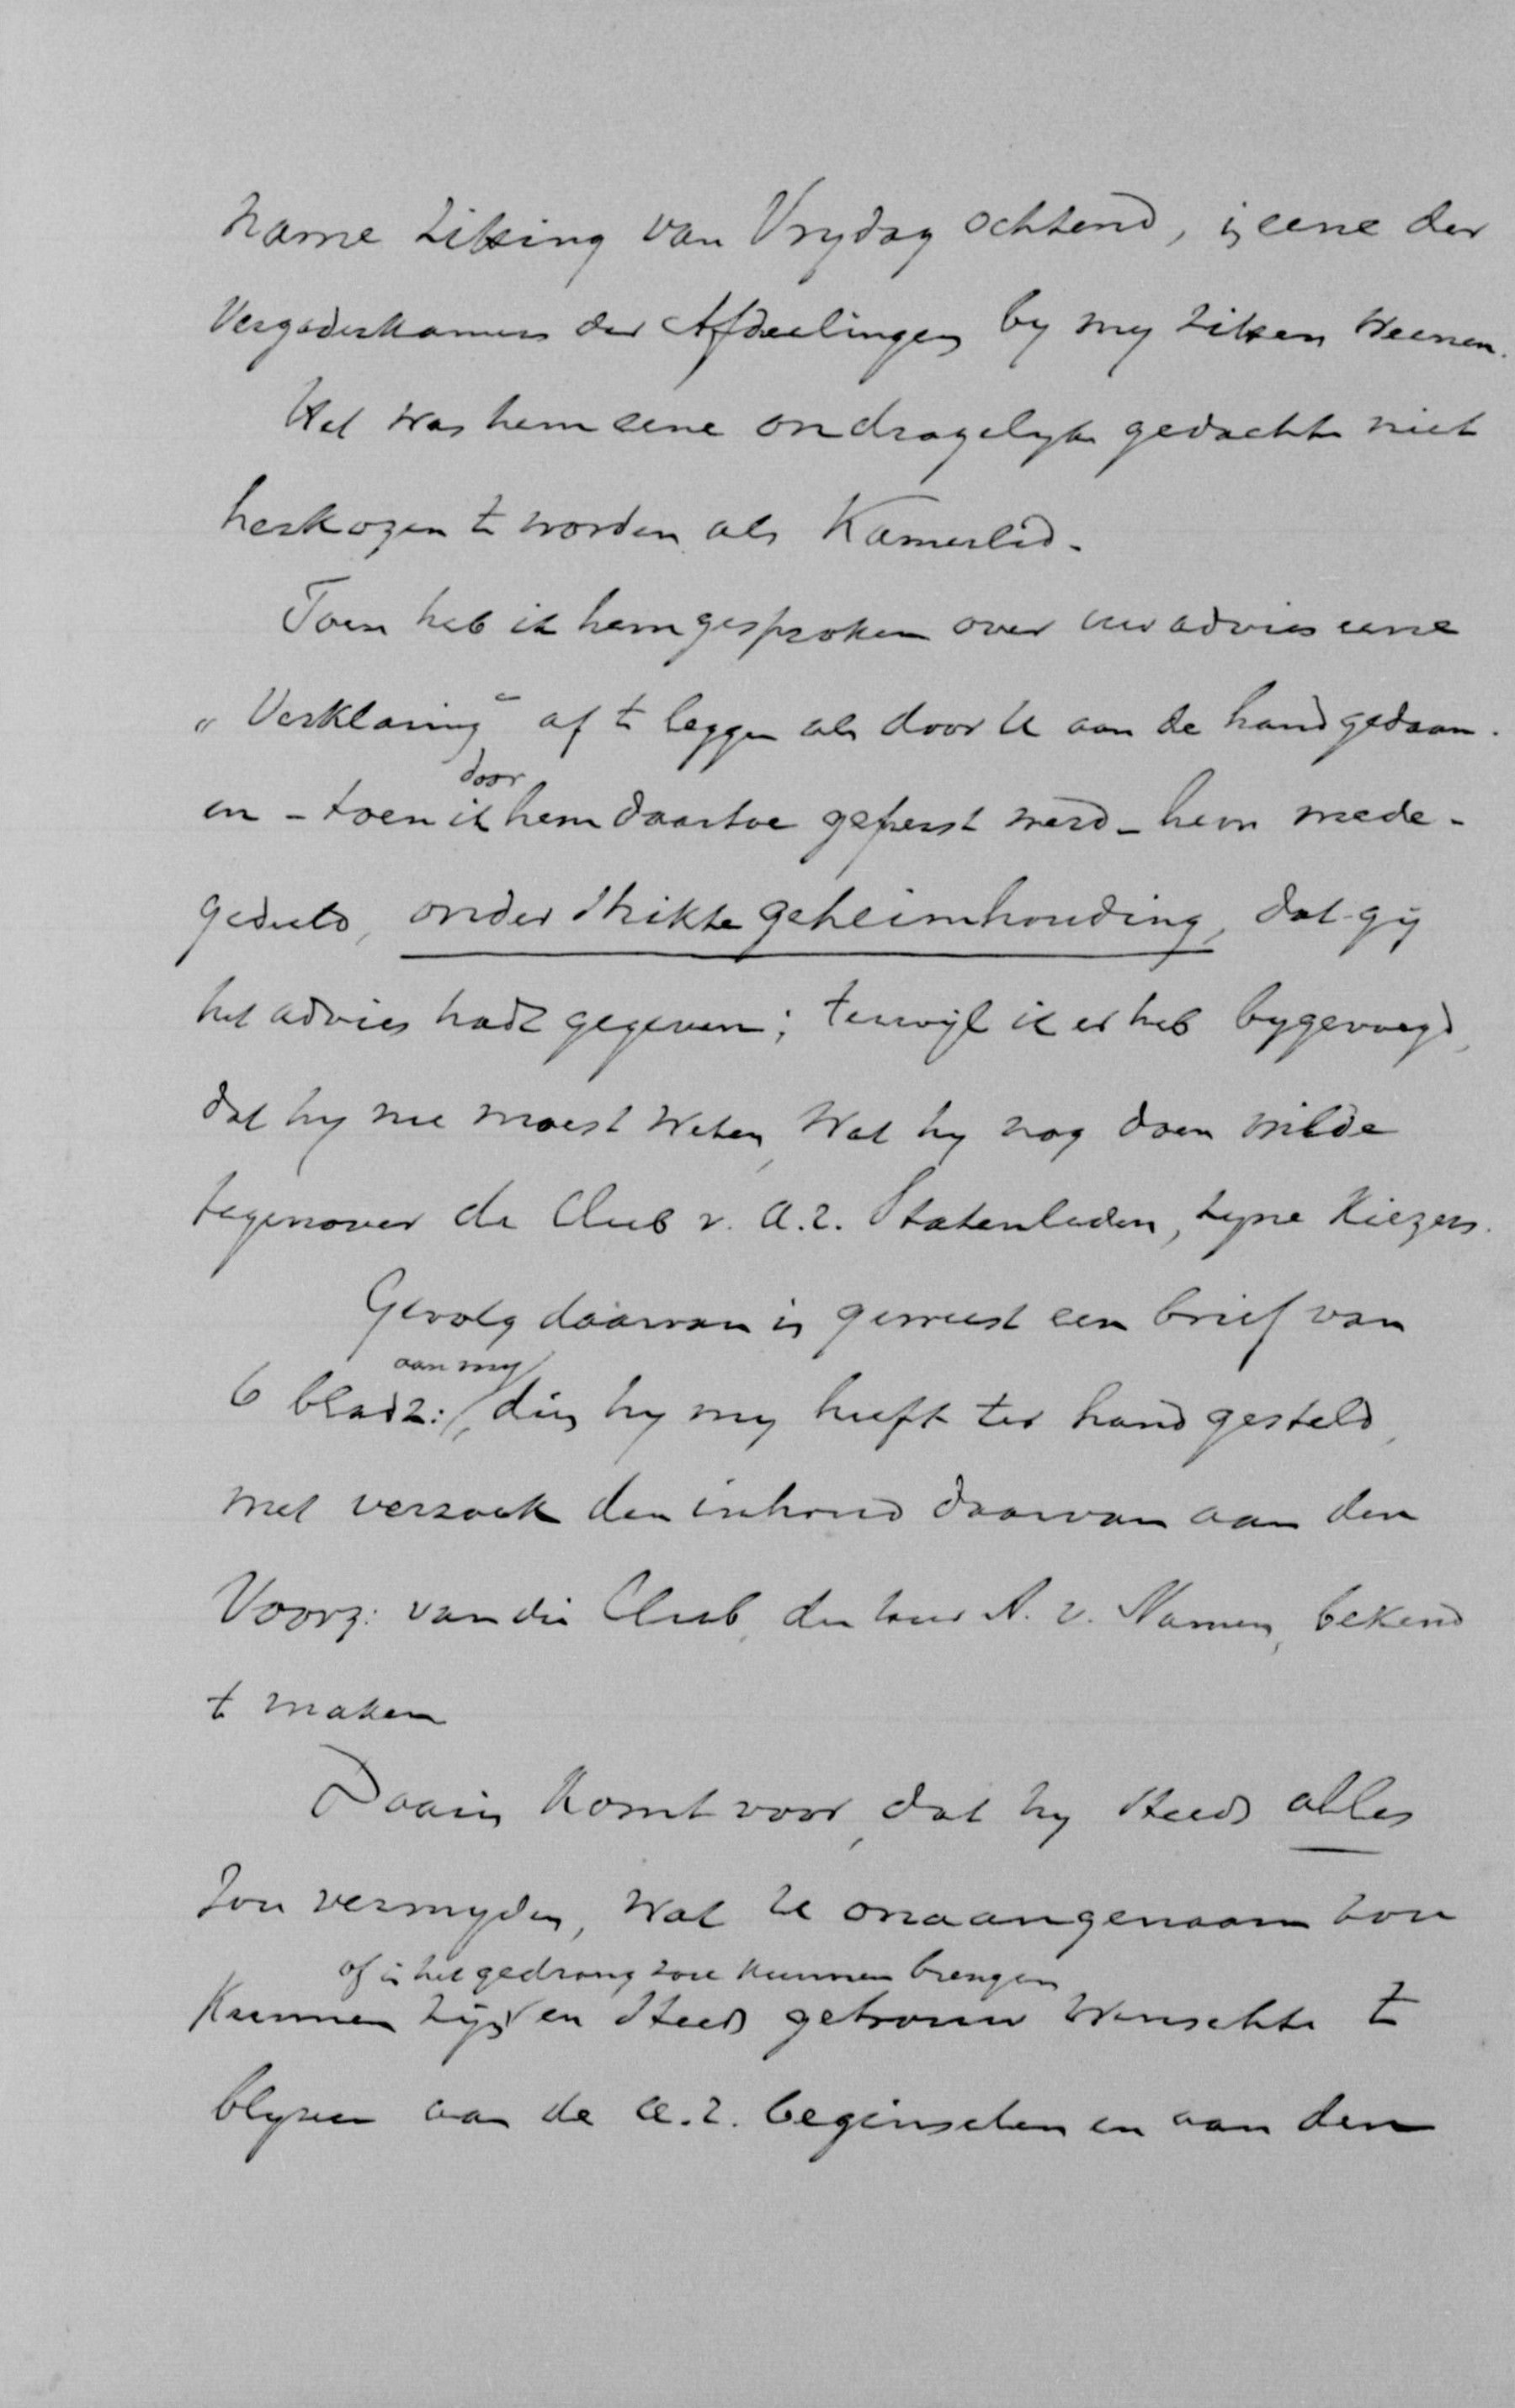 name zitting van Vrydag ochtend, in eene der
Vergaderkamers der Afdeelingen by my zitten Weenen.
Het was hem eene ondragelyke gedachte niet
herkozen te worden als Kamerlid.
Toen heb ik hem gesproken over uw advies eene
„Verklaring" af te leggen als door U aan de hand gedaan.
door
en - toen ik hem daartoe geperst werd - hem mede-
gedeeld, onder strikte geheimhouding, dat gij
het advies hadt gegeven; terwijl ik er heb bygevoegd,
dat hy nu moest weten, Wat hy nog doen wilde
tegenover de Club v. A.R. Statenleden, zyne Kiezers.
Gevolg daarvan is geweest een brief van
aan my
6 bladz:, dien hy my heeft ter hand gesteld,
met verzoek den inhoud daarvan aan den
Voorz: van die Club, den heer A. v. Namen, bekend
te maken
Daarin komt voor, dat hy steeds alles
zou vermyden, Wat U onaangenaam zou
of in het gedrang zou kunnen brengen
Kunnen zijn en steeds getrouw Wenschte te
blyven aan de A.R. beginselen en aan den